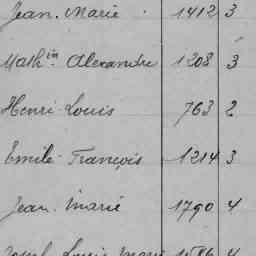 Jean. Marie . 1412 3
Math.in Alexandre 1208 3
Henri-Louis 763 2
Emile-François 1214 3
Jean. Marie 1790 4
Louis Marie 4